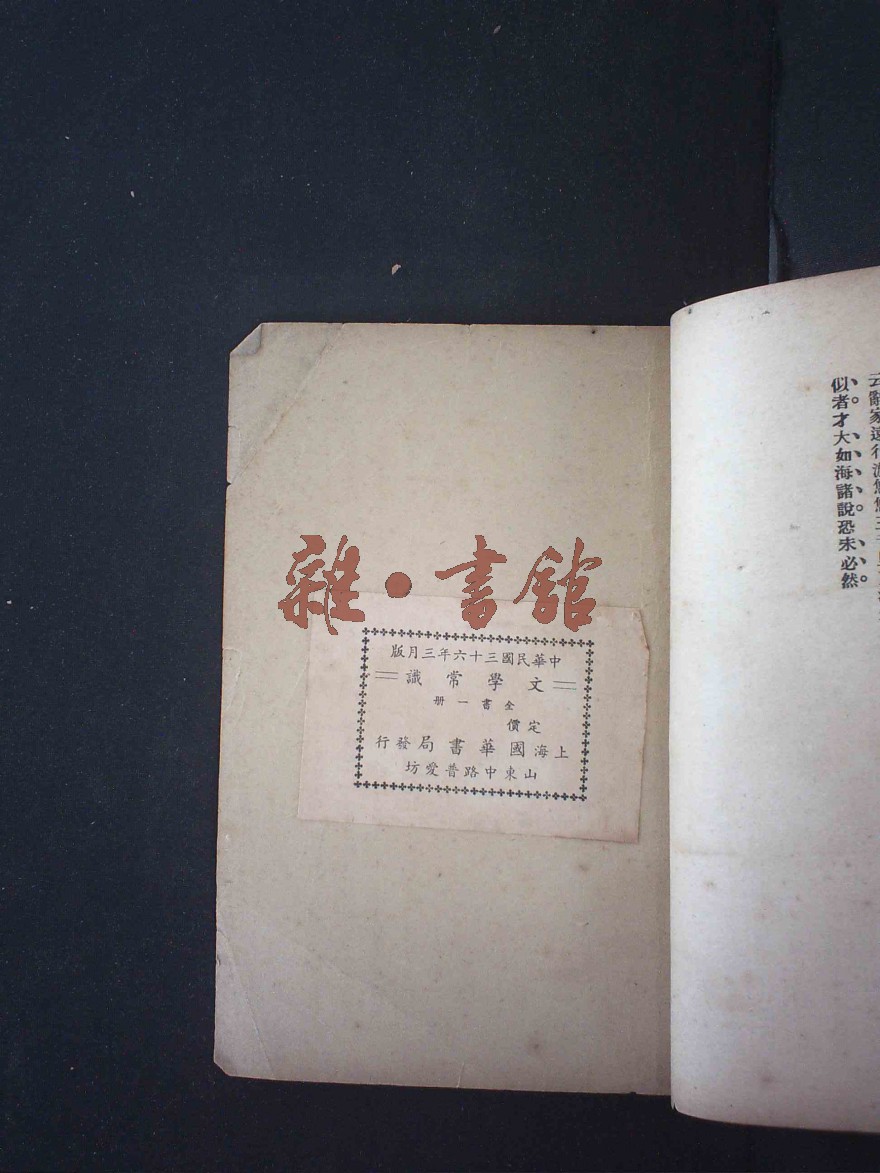 似者才大如海諸說恐未必然。
雜·書館
中華民國三十六年三月版
文學常識
全書一冊
定價
上海國華書局發行
山東中路普愛坊